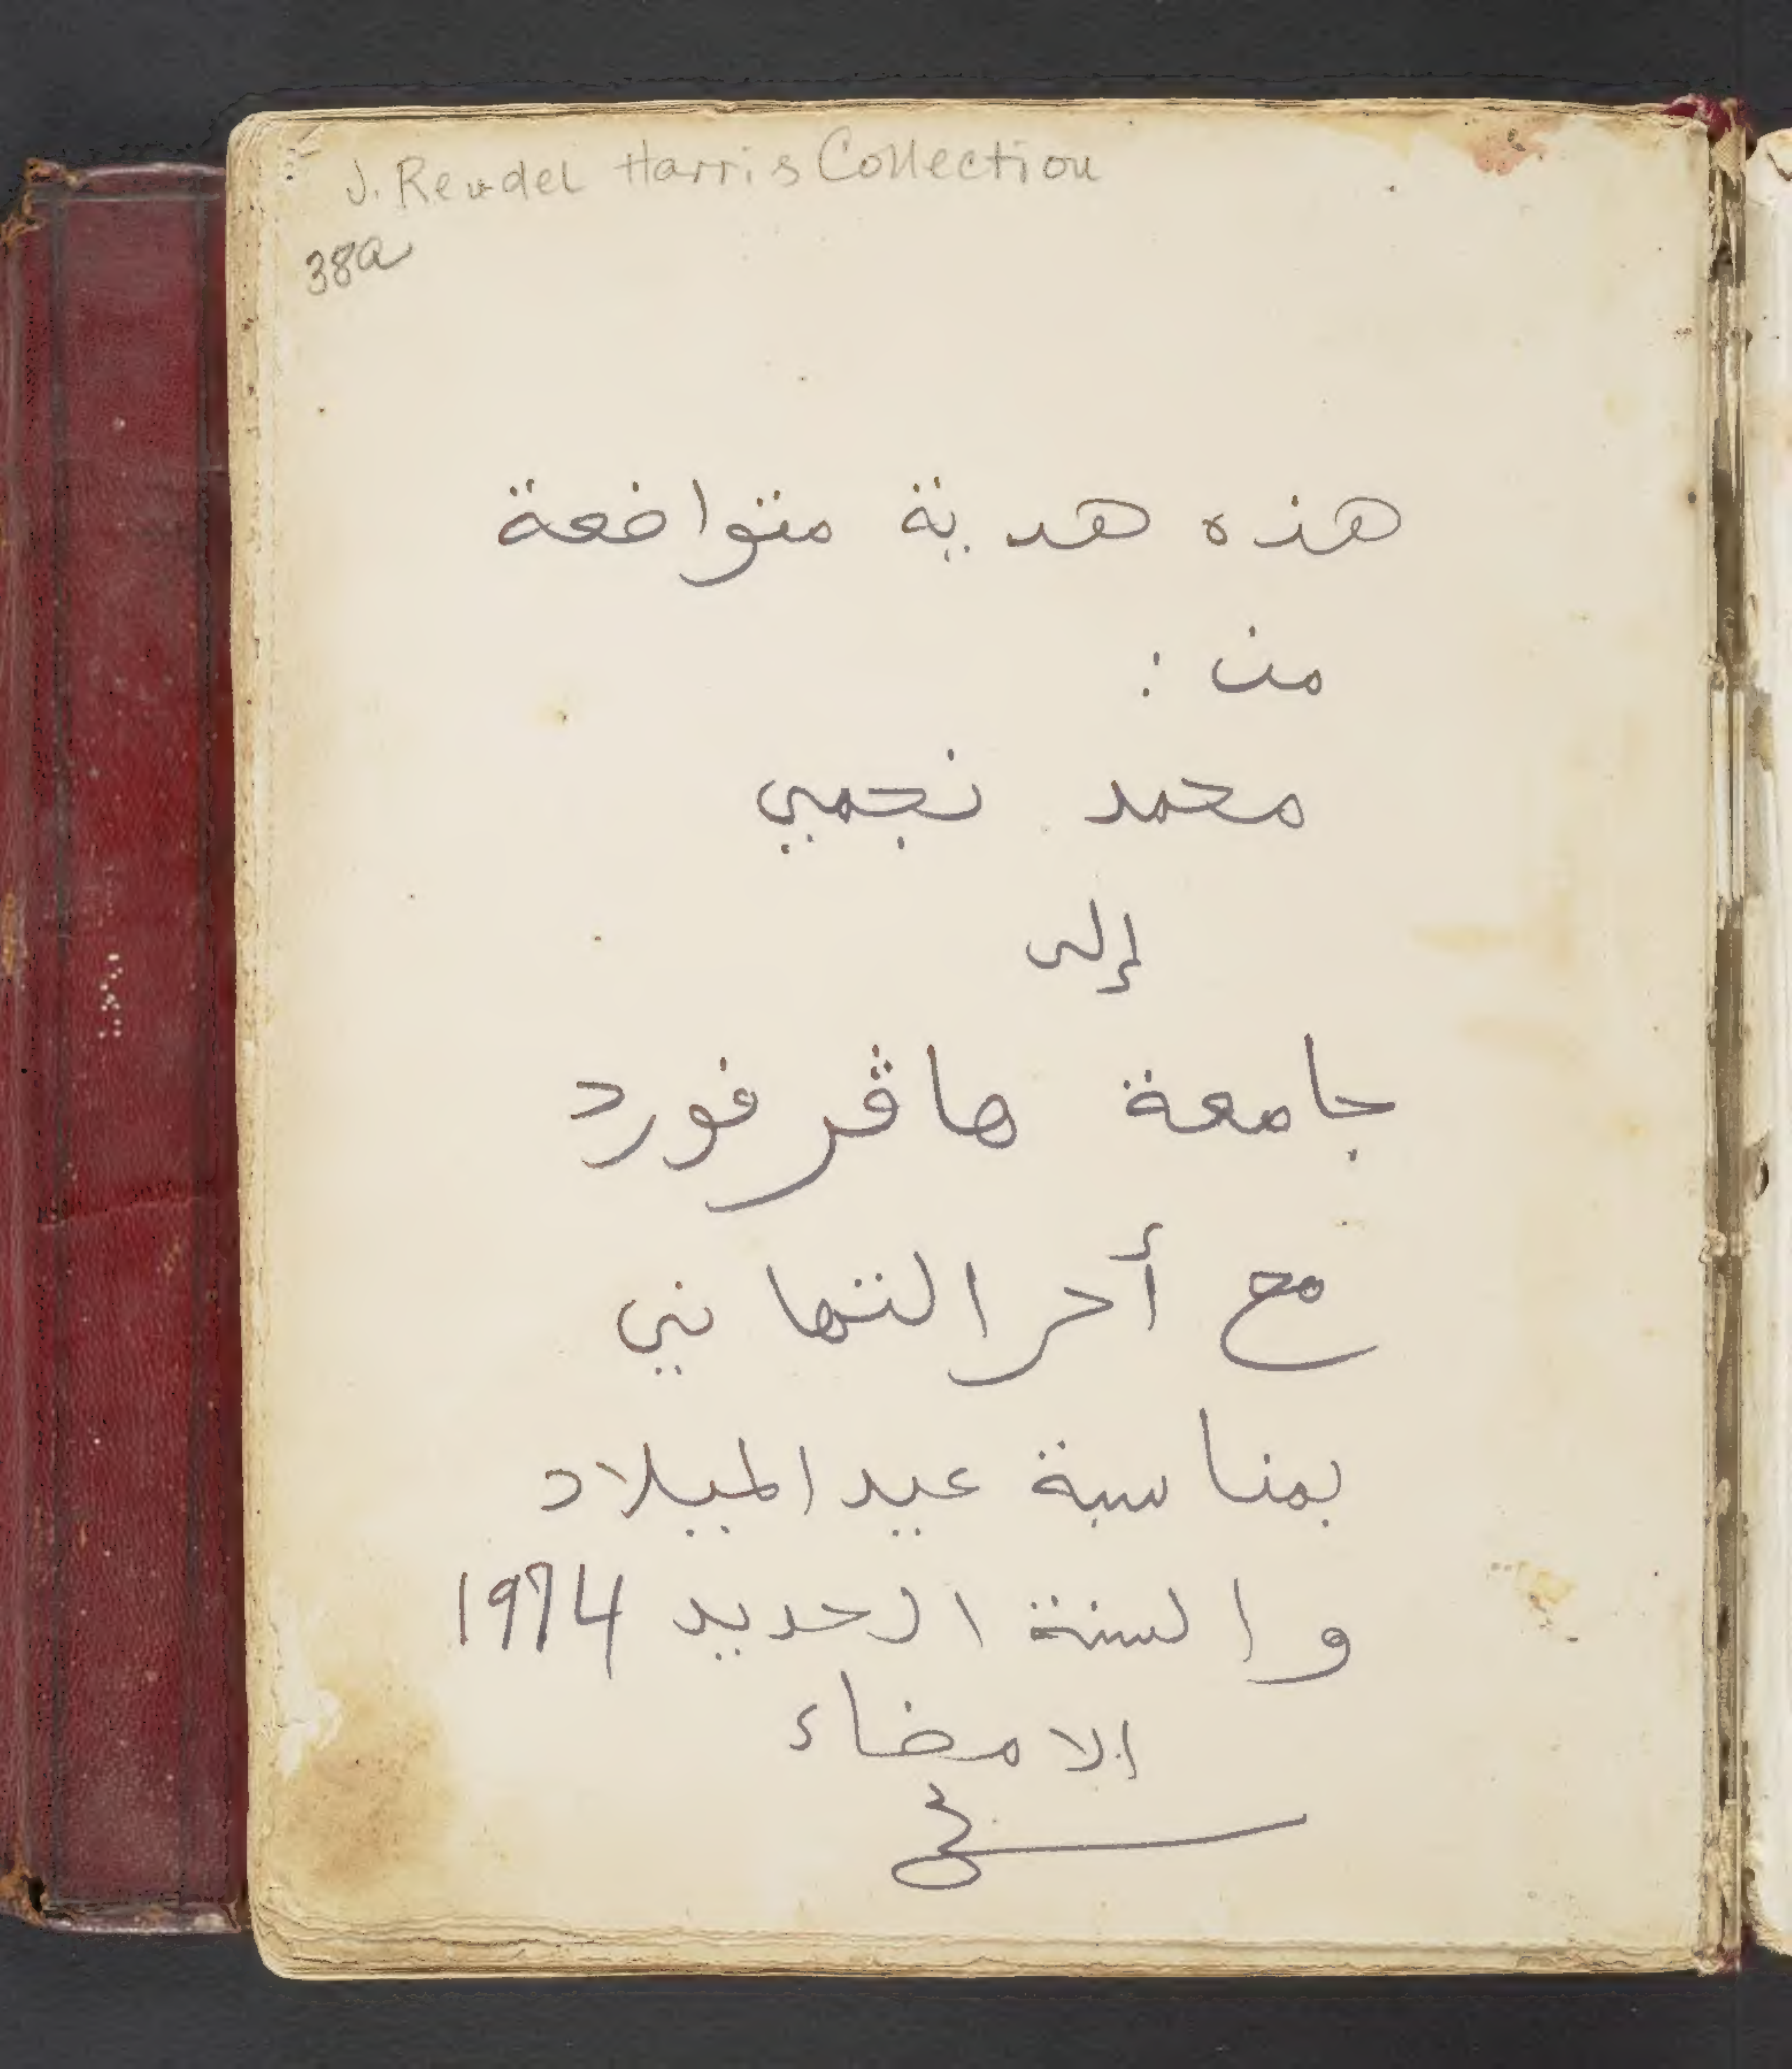 J. Rendel Harris Collection
38a
هذه هدية متواضعة
من :
محمد نجمي
إلى
جامعة هاڤرفورد
مع أحر التهاني
بمناسبة عيد الميلاد
والسنة الحديد 1974
الامضاء